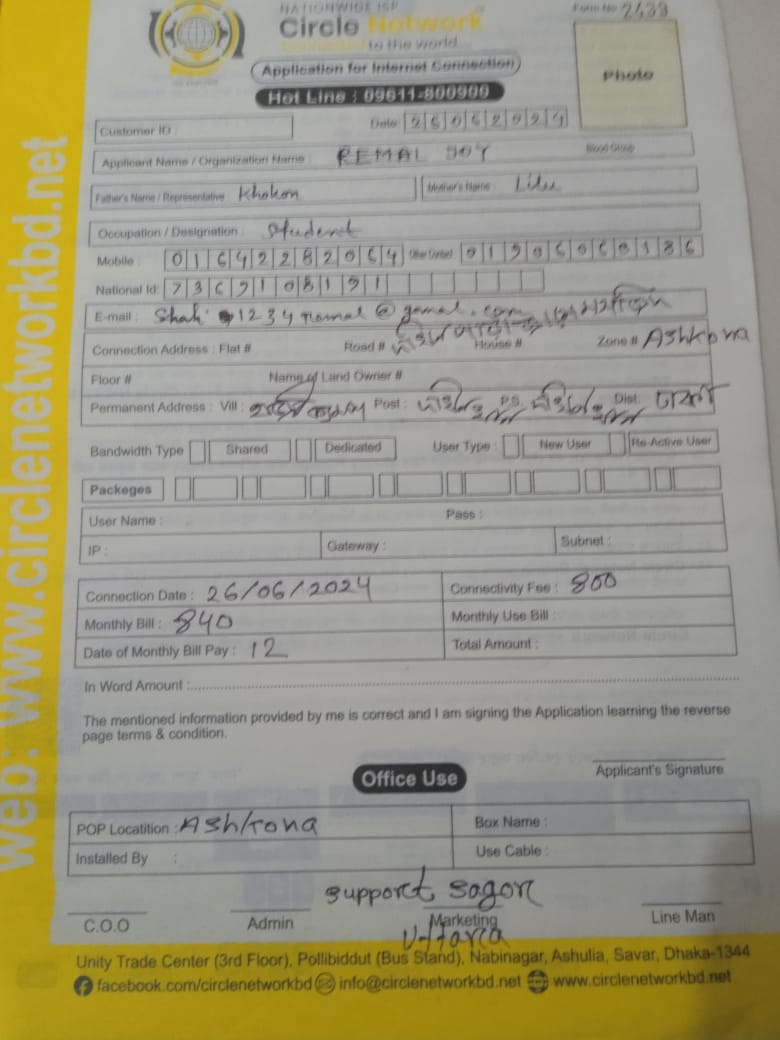 NATIONWIDE ISP
Circle Network
Connected to the world...
Form No 2439
Application for Internet Connection
Hot Line : 09611-800900
Photo
Customer ID :
Date 26062024
Applicant Name / Organization Name : REMAL JOY Blood Group
Father's Name / Representative Khokon Mother's Name : Lilu
Occupation / Designation : Student
Mobile : 01642282064 Other Contact 01906060186
National Id: 7369108191
E-mail : Shah 1234 remal @ gmal.com
Connection Address : Flat # Road # House # Zone # Ashkona
Floor # Name of Land Owner #
Permanent Address : Vill : Post : P.S. Dist: ঢাকা
Bandwidth Type Shared Dedicated User Type : New User Re-Active User
Packeges
User Name : Pass :
IP : Gateway : Subnet :
Connection Date : 26/06/2024 Connectivity Fee : 800
Monthly Bill : 840 Monthly Use Bill :
Date of Monthly Bill Pay : 12 Total Amount :
In Word Amount :
The mentioned information provided by me is correct and I am signing the Application learning the reverse
page terms & condition.
Applicant's Signature
Office Use
POP Locatition : Ashkona Box Name :
Installed By : Use Cable :
support sagor
C.O.O Admin Marketing Line Man
Unity Trade Center (3rd Floor), Pollibiddut (Bus Stand), Nabinagar, Ashulia, Savar, Dhaka-1344
facebook.com/circlenetworkbd info@circlenetworkbd.net www.circlenetworkbd.net
web: www.circlenetworkbd.net